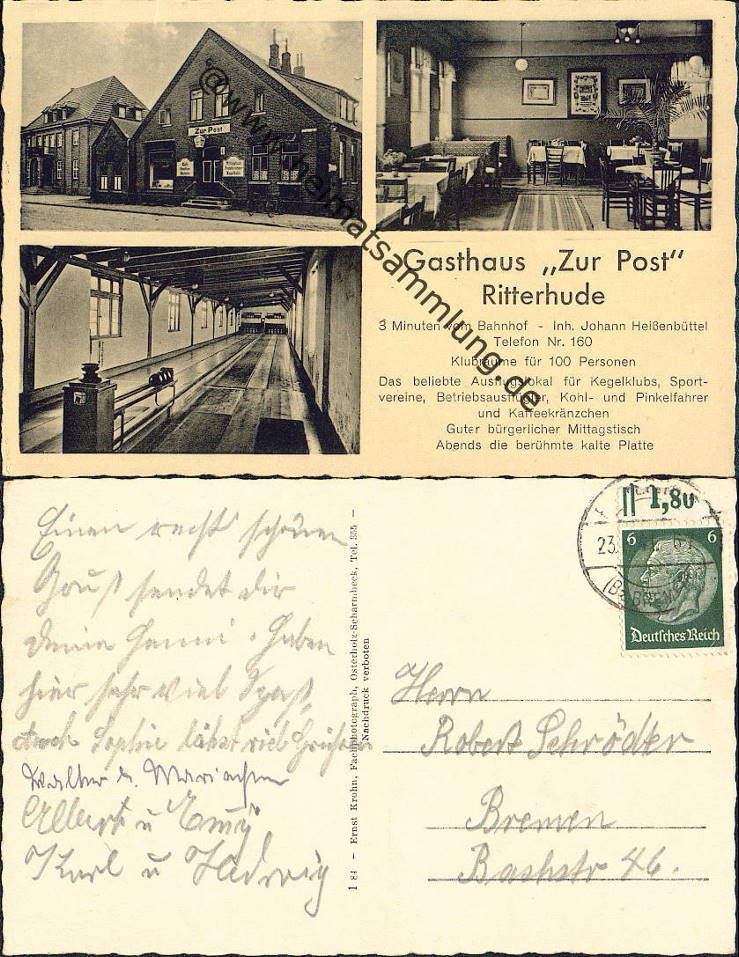 Zur Post
@www.heimatsammlung.de
Gasthaus „Zur Post"
Ritterhude
3 Minuten vom Bahnhof - Inh. Johann Heißenbüttel
Telefon Nr. 160
Klubräume für 100 Personen
Das beliebte Ausflugslokal für Kegelklubs, Sport-
vereine, Betriebsausflügler, Kohl- und Pinkelfahrer
und Kaffeekränzchen
Guter bürgerlicher Mittagstisch
Abends die berühmte kalte Platte
Einen recht schönen
Gruß sendet dir
deine Hanni. Haben
hier sehr viel Spaß,
auch Sophie läßt viel Grüßen
Walter u. Mariechen
Albert u Emmy
Karl u Hedwig
1 84 — Ernst Krohn, Fachphotograph, Osterholz-Scharmbeck, Tel. 355 —
Nachdruck verboten
1,80
23.
(Bz BREMEN)
6 6
Deutsches Reich
Herrn
Robert Schröder
Bremen
Bachstr 46.